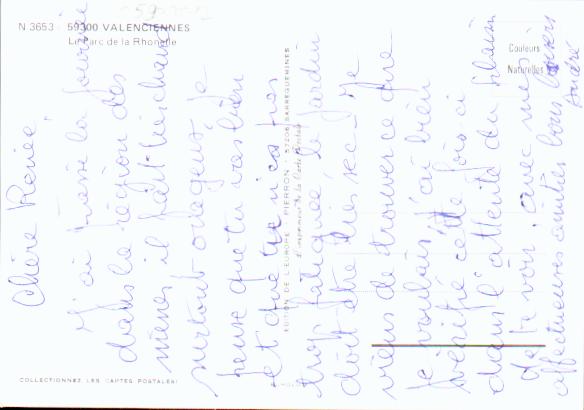 N 3653 59300 VALENCIENNES
Le Parc de la Rhonelle
Couleurs
Naturelles
Chère Renée,
J'ai passé la journée
dans la région des
mines il fait très chaud
surtout orageux. Je
pense que tu vas bien
et que tu n'es pas
trop fatiguée, le jardin
doit être très sec. Je
viens de trouver ce que
je voulais j'ai bien
vérifié cette fois ci
dans l'attente du plaisir
de te voir, avec mes
affectueuses amitiés bons baisers
EDITION DE L'EUROPE PIERRON 57206 SARREGUEMINES
COLLECTIONNEZ LES CARTES POSTALES!